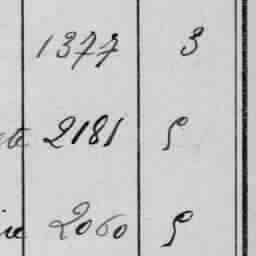 1377 3
te 2181 5
ire 2060 5